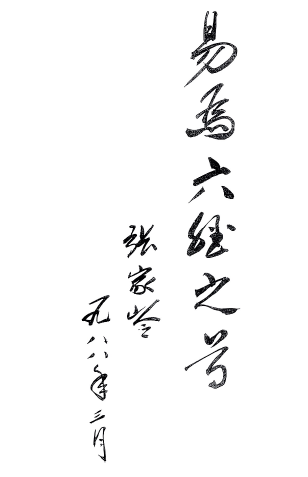 易為六經之首
張家岺
一九八八年三月